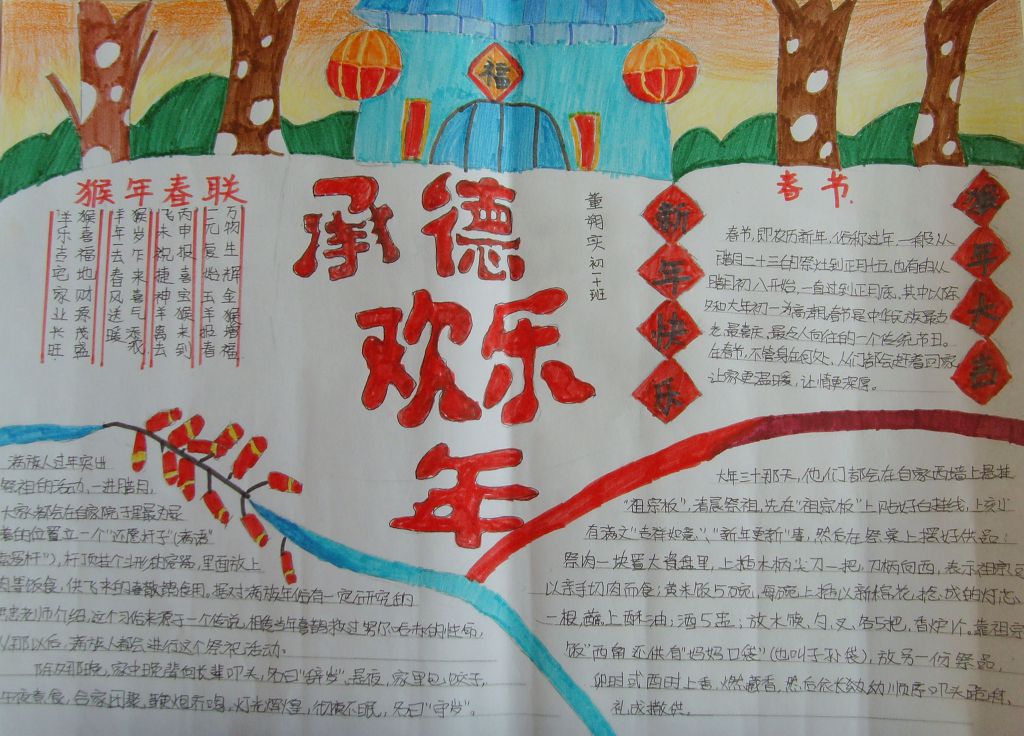 福
猴年春联
万物生辉金猴增福
一元复始玉羊报春
丙申报喜宝猴来到
飞未祝捷神羊离去
猴岁乍来喜气添
羊年一去春风送暖
猴喜福地财源茂盛
羊乐吉宅家业长旺
承德
欢乐
年
董朔实初一班
新年快乐
春节
猴年大吉
春节,即农历新年,俗称过年,一般从
腊月二十三的祭灶到正月十五,也有的从
腊月初八开始,一直过到正月底,其中以除
夕和大年初一为高潮,春节是中华民族最古
老、最喜庆、最令人向往的一个传统节日。
在春节,不管身在何处,人们都会赶着回家
让家更温暖,让情更深厚。
满族人过年突出
祭祖的活动,一进腊月,
大家都会在自家院子里最为显
着的位置立一个"还愿杆子"(满语
杆"),杆顶挂个斗形的容器,里面放上
肉等饭食,供飞来的喜鹊等食用。据对满族年俗有一定研究的
老师介绍,这个习俗来源于一个传说,相传当年喜鹊救过努尔哈赤的性命,
从那以后,满族人都会进行这个祭祀活动。
除夕那晚,家中晚辈向长辈叩头,名曰"辞岁"。是夜,家里包饺子,
午夜煮食,合家团聚,鞭炮齐鸣,灯光辉煌,彻夜不眠,名曰"守岁"。
大年三十那天,他们都会在自家西墙上悬挂
"祖宗板",清晨祭祖,先在"祖宗板"上贴好白挂线,上刻
有满文"吉祥如意"、"新年更新"等,然后在祭桌上摆好供品:
祭肉一块置大瓷盘里,上插木柄尖刀一把,刀柄向西,表示祖宗
以亲手切肉而食;黄米饭5碗,每碗上插以新棉花捻成的灯芯
一根,蘸上酥油;酒5盅;放木筷、勺、叉各5把,香炉1个。靠祖宗
板"西角还供有"妈妈口袋"(也叫子孙袋),放另一份祭品,
卯时或酉时上香,燃藏香,然后依长幼顺序叩头
礼成撤供。